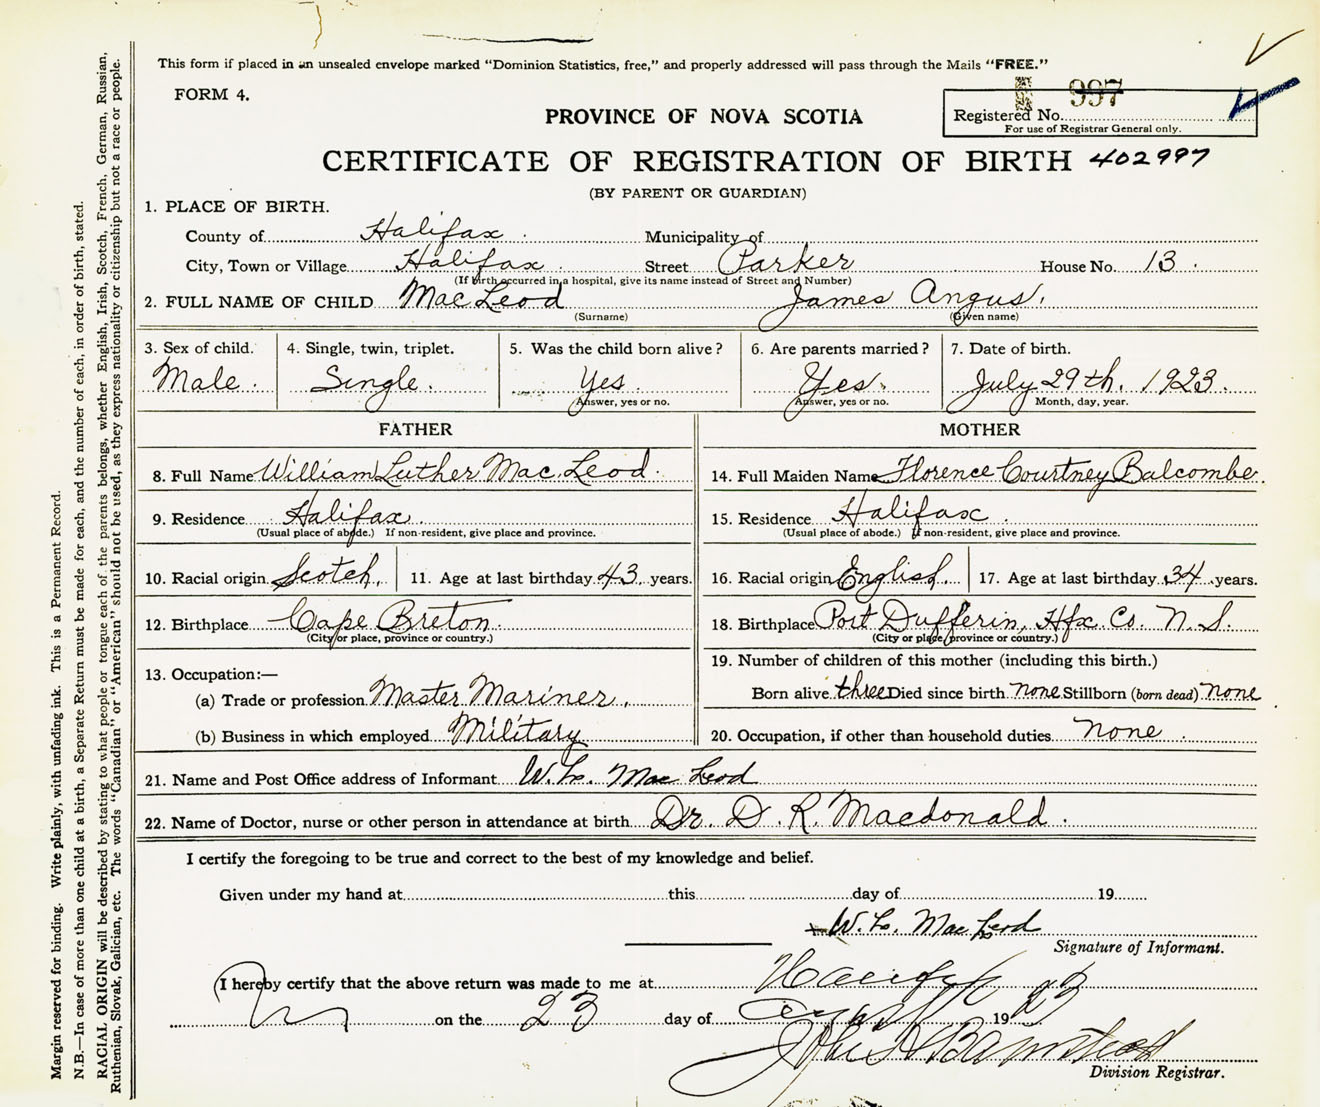 This form if placed in an unsealed envelope marked "Dominion Statistics, free," and properly addressed will pass through the Mails "FREE."
FORM 4.
997
PROVINCE OF NOVA SCOTIA
Registered No.
For use of Registrar General only.
CERTIFICATE OF REGISTRATION OF BIRTH 402997
(BY PARENT OR GUARDIAN)
1. PLACE OF BIRTH.
County of Halifax Municipality of
City, Town or Village Halifax Street Parker House No. 13.
(If birth occurred in a hospital, give its name instead of Street and Number)
2. FULL NAME OF CHILD MacLeod James Angus.
(Surname) (Given name)
3. Sex of child. 4. Single, twin, triplet. 5. Was the child born alive? 6. Are parents married? 7. Date of birth.
Male. Single. Yes. Yes. July 29th. 1923.
Answer, yes or no. Answer, yes or no. Month, day, year.
FATHER MOTHER
8. Full Name William Luther MacLeod. 14. Full Maiden Name Florence Courtney Balcombe.
9. Residence Halifax. 15. Residence Halifax.
(Usual place of abode.) If non-resident, give place and province. (Usual place of abode.) If non-resident, give place and province.
10. Racial origin Scotch. 11. Age at last birthday 43 years. 16. Racial origin English. 17. Age at last birthday 34 years.
12. Birthplace Cape Breton. 18. Birthplace Port Dufferin, Hfx. Co. N. S.
(City or place, province or country.) (City or place, province or country.)
13. Occupation:— 19. Number of children of this mother (including this birth.)
(a) Trade or profession Master Mariner. Born alive three Died since birth none Stillborn (born dead) none
(b) Business in which employed Military 20. Occupation, if other than household duties none.
21. Name and Post Office address of Informant W. L. MacLeod
22. Name of Doctor, nurse or other person in attendance at birth Dr. D. R. Macdonald.
I certify the foregoing to be true and correct to the best of my knowledge and belief.
Given under my hand at this day of 19
W. L. MacLeod
Signature of Informant.
I hereby certify that the above return was made to me at
on the 23 day of 19 23
Division Registrar.
Margin reserved for binding. Write plainly, with unfading ink. This is a Permanent Record.
N.B.—In case of more than one child at a birth, a Separate Return must be made for each, and the number of each, in order of birth, stated.
RACIAL ORIGIN will be described by stating to what people or tongue each of the parents belongs, whether English, Irish, Scotch, French, German, Russian,
Ruthenian, Slovak, Galician, etc. The words "Canadian" or "American" should not be used, as they express nationality or citizenship but not a race or people.